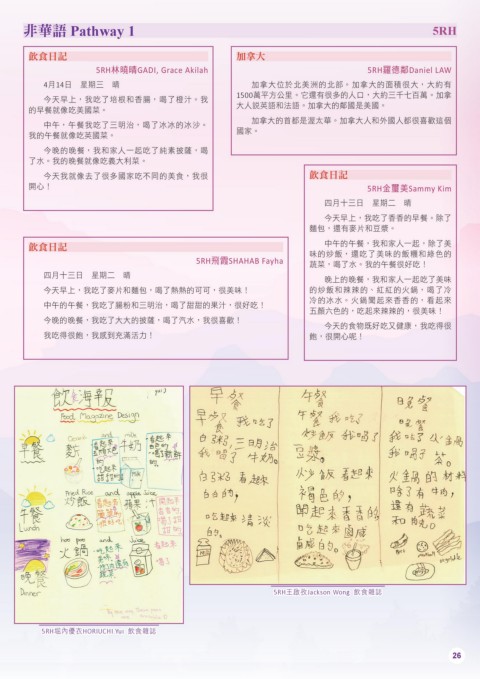 非華語 Pathway 1
5RH
飲食日記
5RH林曉晴GADI, Grace Akilah
4月14日　星期三　晴
今天早上，我吃了培根和香腸，喝了橙汁。我
的早餐就像吃美國菜。
中午，午餐我吃了三明治，喝了冰冰的冰沙。
我的午餐就像吃英國菜。
今晚的晚餐，我和家人一起吃了純素披薩，喝
了水。我的晚餐就像吃義大利菜。
今天我就像去了很多國家吃不同的美食，我很
開心！
加拿大
5RH羅德鄰Daniel LAW
加拿大位於北美洲的北部。加拿大的面積很大，大約有
1500萬平方公里。它還有很多的人口，大約三千七百萬。加拿
大人説英語和法語。加拿大的鄰國是美國。
加拿大的首都是渥太華。加拿大人和外國人都很喜歡這個
國家。
飲食日記
5RH金璽美Sammy Kim
四月十三日　星期二　晴
今天早上，我吃了香香的早餐。除了
麵包，還有麥片和豆漿。
中午的午餐，我和家人一起，除了美
味的炒飯，還吃了美味的飯糰和綠色的
蔬菜，喝了水。我的午餐很好吃！
晚上的晚餐，我和家人一起吃了美味
的炒飯和辣辣的、紅紅的火鍋，喝了冷
冷的冰水。火鍋聞起來香香的，看起來
五顏六色的，吃起來辣辣的，很美味！
今天的食物既好吃又健康，我吃得很
飽，很開心呢！
飲食日記
5RH飛霞SHAHAB Fayha
四月十三日　星期二　晴
今天早上，我吃了麥片和麵包，喝了熱熱的可可，很美味！
中午的午餐，我吃了腸粉和三明治，喝了甜甜的果汁，很好吃！
今晚的晚餐，我吃了大大的披薩，喝了汽水，我很喜歡！
我吃得很飽，我感到充滿活力！
飲食海報
Yui
Food Magazine Design
早餐
and milk
牛奶
Fried Rice and apple juice
炒飯
蘋果汁
午餐
Lunch
hot pot and Juice
火鍋
晚餐
Dinner
5RH垣內優衣HORIUCHI Yui　飲食雜誌
早餐
早餐 我吃了
白粥,三明治
我喝了 牛奶。
白粥 看起來
白白的,
吃起來清淡
的。
午餐
午餐 我吃了
炒飯 我喝了
豆漿。
炒飯 看起來
褐色的,
聞起來香香的
晚餐
晚餐
我吃了 火鍋
我喝了 茶。
火鍋的材料
除了有牛肉,
還有 蔬菜
5RH王啟孜Jackson Wong　飲食雜誌
26